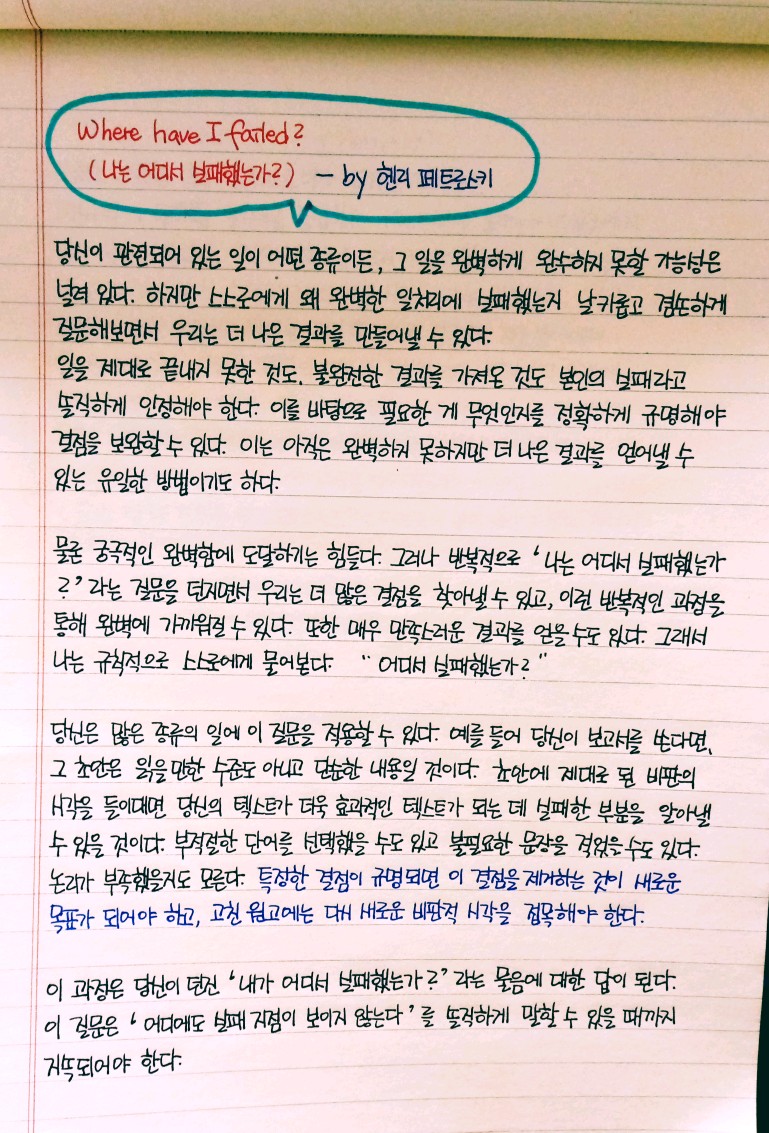 Where have I failed?
(나는 어디서 실패했는가?) - by 헨리 페트로스키
당신이 관련되어 있는 일이 어떤 종류이든, 그 일을 완벽하게 완수하지 못할 가능성은
널려 있다. 하지만 스스로에게 왜 완벽한 일처리에 실패했는지 날카롭고 겸손하게
질문해보면서 우리는 더 나은 결과를 만들어낼 수 있다.
일을 제대로 끝내지 못한 것도, 불완전한 결과를 가져온 것도 본인의 실패라고
솔직하게 인정해야 한다. 이를 바탕으로 필요한 게 무엇인지를 정확하게 규명해야
결점을 보완할 수 있다. 이는 아직은 완벽하지 못하지만 더 나은 결과를 얻어낼 수
있는 유일한 방법이기도 하다.
물론 궁극적인 완벽함에 도달하기는 힘들다. 그러나 반복적으로 '나는 어디서 실패했는가
?' 라는 질문을 던지면서 우리는 더 많은 결점을 찾아낼 수 있고, 이런 반복적인 과정을
통해 완벽에 가까워질 수 있다. 또한 매우 만족스러운 결과를 얻을 수도 있다. 그래서
나는 규칙적으로 스스로에게 물어본다. "어디서 실패했는가?"
당신은 많은 종류의 일에 이 질문을 적용할 수 있다. 예를 들어 당신이 보고서를 쓴다면,
그 초안은 읽을만한 수준도 아니고 단순한 내용일 것이다. 초안에 제대로 된 비판의
시각을 들이대면 당신의 텍스트가 더욱 효과적인 텍스트가 되는 데 실패한 부분을 알아낼
수 있을 것이다. 부적절한 단어를 선택했을 수도 있고 불필요한 문장을 적었을 수도 있다.
논리가 부족했을지도 모른다. 특정한 결점이 규명되면 이 결점을 제거하는 것이 새로운
목표가 되어야 하고, 고친 원고에는 다시 새로운 비판적 시각을 접목해야 한다.
이 과정은 당신이 던진 '내가 어디서 실패했는가?' 라는 물음에 대한 답이 된다.
이 질문은 '어디에도 실패 지점이 보이지 않는다'를 솔직하게 말할 수 있을 때까지
거듭되어야 한다.